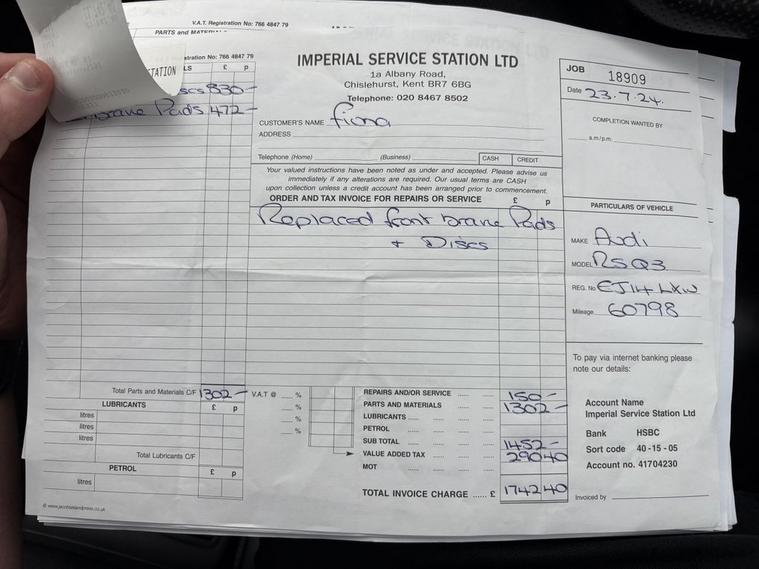 V.A.T. Registration No: 766 4847 79
PARTS and MATERIALS
stration No: 766 4847 79
STATION
LS £ p
Discs 830-
Brake Pads 472-
IMPERIAL SERVICE STATION LTD
1a Albany Road,
Chislehurst, Kent BR7 6BG
Telephone: 020 8467 8502
CUSTOMER'S NAME Fiona
ADDRESS
Telephone (Home) (Business) CASH CREDIT
Your valued instructions have been noted as under and accepted. Please advise us
immediately if any alterations are required. Our usual terms are CASH
upon collection unless a credit account has been arranged prior to commencement.
ORDER AND TAX INVOICE FOR REPAIRS OR SERVICE £ p
Replaced front brake Pads
+ Discs
JOB 18909
Date 23.7.24.
COMPLETION WANTED BY
a.m/p.m.
PARTICULARS OF VEHICLE
MAKE Audi
MODEL RSQ3
REG. No EJ14 LXW
Mileage 60798
To pay via internet banking please
note our details:
Account Name
Imperial Service Station Ltd
Bank HSBC
Sort code 40-15-05
Account no. 41704230
Invoiced by
Total Parts and Materials C/F 1302-
LUBRICANTS £ p
litres
litres
litres
Total Lubricants C/F
PETROL £ p
litres
V.A.T @ %
%
%
%
REPAIRS AND/OR SERVICE 150-
PARTS AND MATERIALS 1302-
LUBRICANTS
PETROL
SUB TOTAL 1452-
VALUE ADDED TAX 290 40
MOT
TOTAL INVOICE CHARGE ...... £ 1742 40